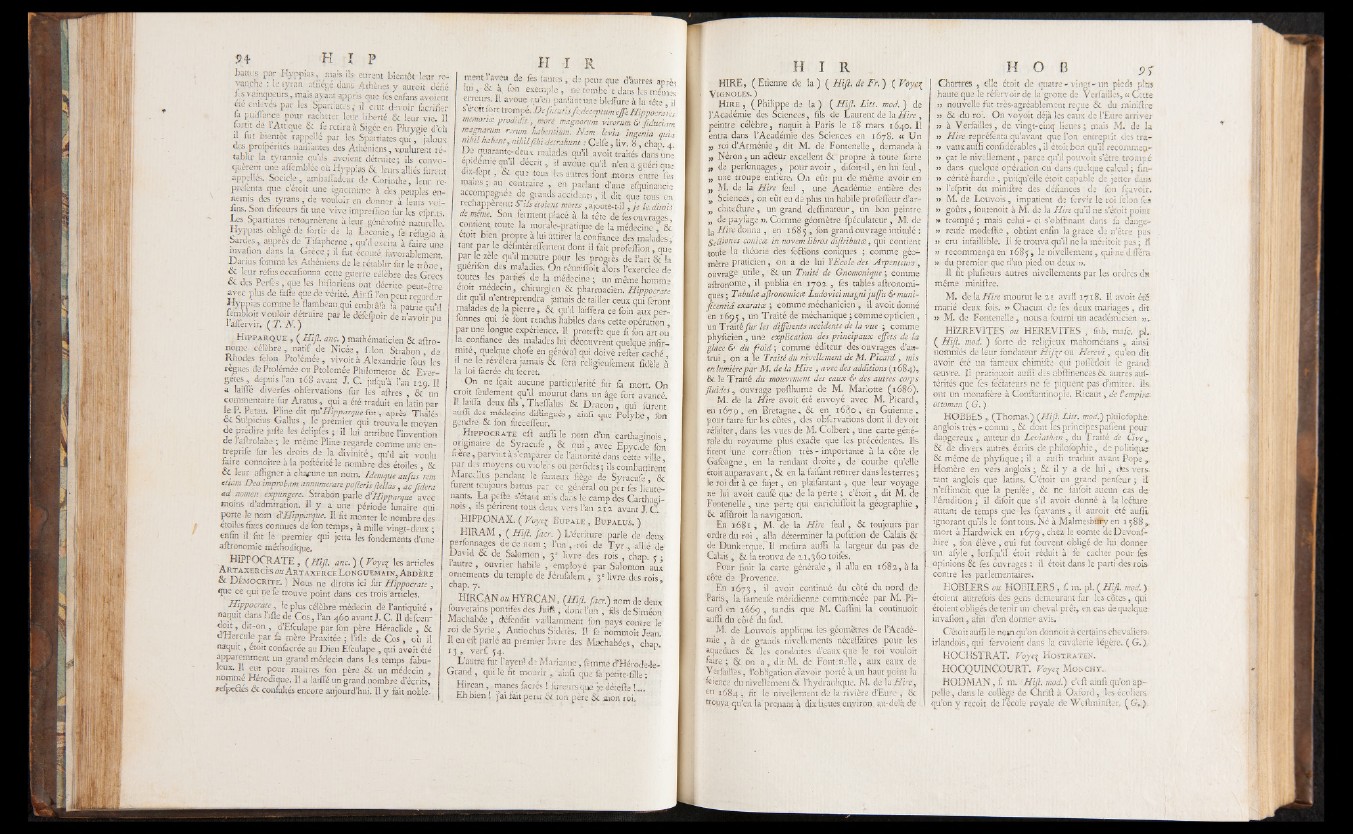 94 H I P
battus par Hyppias, mais ils eurent bientôt leur re-
vanche : le tyran assiégé dans Athènes y auroit défié
ses vainqueurs, mais ayant appris que ses enfans avoient
été enlevés par les Spartiates ; il crut devoir sacrifier
sa puissance pour racheter leur liberté & leur vie. Il
sortit de l'Attique & se retira à Sigée en Phrygie d'où
il fut bientôt rappellé par les Spartiates qui, jaloux
des prospérités naissantes des Athéniens, voulurent ré-
tablir la tyrannie qu'ils avoient détruite ; ils convo-
quèrent une assemblée où Hyppias & leurs alliés furent
appellés. Sosicle, ambassadeur de Corinthe, leur re-
présenta que c'étoit une ignominie à des peuples en-
nemis des tyrans, de vouloir en donner à leurs voi-
sins. Son discours fit une vive impression sur les esprits.
Les Spartiates retournèrent à leur générosité naturelle.
Hyppias obligé de sortir de la Laconie, se réfugia à
Sardes, auprès de Tisapherne, qu'il excita à faire une
invasion dans la Grèce ; il fut écouté favorablement.
Darius somma les Athéniens de le rétablir sur le trône,
& leur refus occasionna cette guerre célèbre des Grecs
& des Perses, que les historiens ont décrite peut-être
avec plus de faste que de vérité. Ainsi l'on peut regarder
Hyppias comme le flambeau qui embrâsa sa patrie qu'il
sembloit vouloir détruire par le désespoir de n'avoir pu
l'asservir. ( T. N. )
HIPPARQUE, ( Hist. anc. ) mathématicien & astro-
nome célèbre, natif de Nicée, selon Strabon, de
Rhodes selon Ptolémée, vivoit à Alexandrie sous les
règnes de Ptolémée ou Ptolemée Philometor & Ever-
gètes, depuis l'an 168 avant J. C. jusqu'à l'an 129. Il
a laissé diverses observations sur les astres, & un
commentaire sur Aratus, qui a été traduit en latin par
le P. Petau. Pline dit qu'Hipparque fut, après Thalès
& Sulpicius Gallus, le premier qui trouva le moyen
de prédire juste les éclipses ; il lui attribue l'invention
de l'astrolabe ; le même Pline regarde comme une en-
treprise sur les droits de la divinité, qu'il ait voulu
faire connoître à la postérité le nombre des étoiles, &
& leur assigner à chacune un nom. Idemque ausus rem
etiam Deo improbam annumerare posteris stellas, ac sidera
ad nomen expungere. Strabon parle d'Hipparque avec
moins d'admiration. Il y a une période lunaire qui
porte le nom d'Hipparque. Il fit monter le nombre des
étoiles fixes connues de son temps, à mille vingt-deux ;
enfin il fut le premier qui jetta les fondements d'une
astronomie méthodique.
HIPPOCRATE, ( Hist. anc. ) ( Voyez les articles
ARTAXERCÈS ou ARTAXERCE LONGUEMAIN, ABDÈRE
& DÉMOCRITE. ) Nous ne dirons ici sur Hippocrate,
que ce qui ne se trouve point dans ces trois articles.
Hippocrate, le plus célèbre médecin de l'antiquité,
naquit dans l'isle de Cos, l'an 460 avant J. C. Il descen-
doit, dit-on, d'Esculape par son père Héraclide, &
d'Hercule par sa mère Praxitée ; l'isle de Cos, où il
naquit, étoit consacrée au Dieu Esculape, qui avoit été
apparemment un grand médecin dans les temps fabu-
leux. Il eut pour maitres son père & un médecin,
nommé Hérodique. Il a laissé un grand nombre d'écrits,
respectés & consultés encore aujourd'hui. Il y fait noble-
H I R
ment l'aveu de ses fautes, de peur que d'autres après
lui, & à son exemple, ne tombent dans les mêmes
erreurs. Il avoue qu'en pansant une blessure à la tête, il
s'étoit fort trompé.
épidémie qu'il décrit, il avoue qu'il n'en a guéri que
dix-sept, & que tous les autres sont morts entre ses
mains ; au contraire, en parlant d'une esquinancie
accompagnée de grands accidens, il dit que tous en
rechappèrent. S'ils étoient morts, ajoute-t-il, je le dirois
de même. Son serment placé à la tête de ses ouvrages,
contient toute la morale-pratique de la médecine, &
étoit bien propre à lui attirer la confiance des malades,
tant par le désintéressement dont il fait profession, que
par le zèle qu'il montre pour les progrès de l'art & la
guérison des maladies. On réunissoit alors l'exercice de
toutes les parties de la médecine ; un même homme
étoit médecin, chirurgien & pharmacien. Hippocrate
dit qu'il n'entreprendra jamais de tailler ceux qui seront
malades de la pierre, & qu'il laissera ce soin aux per-
sonnes qui se sont rendus habiles dans cette opération,
par une longue expérience. Il proteste que si son art ou
la confiance des malades lui découvrent quelque infir-
mité, quelque chose en général qui doive rester caché,
il ne le révélera jamais & sera religieusement fidèle à
la loi sacrée du secret.
On ne sçait aucune particularité sur sa mort. On
croit seulement qu'il mourut dans un âge fort avancé.
Il laissa deux fils, Thessalus & Dracon, qui furent
aussi des médecins distingués, ainsi que Polybe, son
gendre & son successeur.
HIPPOCRATE est aussi le nom d'un carthaginois,
originaire de Syracuse, & qui, avec Epycide son
frère, parvint à s'emparer de l'autorité dans cette ville,
par des moyens ou violens ou perfides ; ils combattirent
Marcellus pendant le fameux siège de Syracuse, &
furent toujours battus par ce général ou par ses lieute-
nants. La peste s'étant mis dans le camp des Carthagi-
nois, ils périrent tous deux vers l'an 212 avant J. C.
HIPPONAX. ( Voyez BUPALE, BUPALUS. )
HIRAM, ( Hist. sacr. ) L'écriture parle de deux
personnages de ce nom ; l'un, roi de Tyr, allié de
David & de Salomon, 3e livre des rois, chap. 5 ;
l'autre, ouvrier habile, employé par Salomon aux
ornements du temple de Jérusalem, 3e livre des rois,
chap. 7.
HIRCAN ou HYRCAN, (Hist. sacr.) nom de deux
souverains pontifes des Juifs, dont l'un, fils de Siméon
Machabée, défendit vaillamment son pays contre le
roi de Syrie, Antiochus Sidetès. Il se nommoit Jean.
Il en est parlé au premier livre des Machabées, chap.
13, vers. 54.
L'autre fut l'ayeul de Mariamne, femme d'Hérode-le-
Grand, qui le fit mourir, ainsi que sa petite-fille ;
Hircan, manes sacrés ! fureurs que je déteste !...
Eh bien ! j'ai fait périr & ton père & mon roi.
H I R
HIRE, ( Etienne de la ) ( Hist. de Fr. ) ( Voyez
VIGNOLES. )
HIRE, ( Philippe de la ) ( Hist. Litt. mod. ) de
l'Académie des Sciences, fils de Laurent de la Hire,
peintre célèbre, naquit à Paris le 18 mars 1640. Il
entra dans l'Académie des Sciences en 1678. « Un
» roi d'Arménie, dit M. de Fontenelle, demanda à
» Néron, un acteur excellent & propre à toute sorte
» de personnages, pour avoir, disoit-il, en lui seul,
» une troupe entière. On eût pu de même avoir en
» M. de la Hire seul, une Académie entière des
» Sciences, on eût eu de plus un habile professeur d'ar-
» chitecture, un grand dessinateur, un bon peintre
» de paysage ». Comme géomètre spéculateur, M. de
la Hire donna, en 1685, son grand ouvrage intitulé :
Sectiones conicæ in novem libros distributæ, qui contient
toute la théorie des sections coniques ; comme géo-
mètre praticien, on a de lui l'Ecole des Arpenteurs,
ouvrage utile, & un Traité de Gnomonique ; comme
astronome, il publia en 1702, ses tables astronomi-
ques ; Tabulæ astronomicæ Ludovici magni jussu & muni-
ficentiâ exaratæ ; comme méchanicien, il avoit donné
en 1695, un Traité de méchanique ; comme opticien,
un Traité sur les différents accidents de la vue ; comme
physicien, une explication des principaux effets de la
glace & du froid ; comme éditeur des ouvrages d'au-
trui, on a le Traité du nivellement de M. Picard, mis
en lumière par M. de la Hire, avec des additions (1684),
& le Traité du mouvement des eaux & des autres corps
fluides, ouvrage posthume de M. Mariotte (1686).
M. de la Hire avoit été envoyé avec M. Picard,
en 1679, en Bretagne, & en 1680, en Guienne,
pour faire sur les côtes, des observations dont il devoit
résulter, dans les vues de M. Colbert, une carte géné-
rale du royaume plus exacte que les précédentes. Ils
firent une correction très-importante à la côte de
Gascogne, en la rendant droite, de courbe qu'elle
étoit auparavant, & en la faisant rentrer dans les terres ;
le roi dit à ce sujet, en plaisantant, que leur voyage
ne lui avoit causé que de la perte : c'étoit, dit M. de
Fontenelle, une perte qui enrichissoit la géographie,
& assûroit la navigation.
En 1681, M. de la Hire seul, & toujours par
ordre du roi, alla déterminer la position de Calais &
de Dunkerque. Il mesura aussi la largeur du pas de
Calais, & la trouva de 21,360 toises.
Pour finir la carte générale, il alla en 1682, à la
côte de Provence.
En 1683, il avoit continué du côté du nord de
Paris, la fameuse méridienne commencée par M. Pi-
card en 1669, tandis que M. Cassini la continuoit
aussi du côté du sud.
M. de Louvois appliqua les géomètres de l'Acadé-
mie, à de grands nivellements nécessaires pour les
aqueducs & les conduites d'eaux que le roi vouloit
faire ; & on a, dit M. de Fontenelle, aux eaux de
Versailles, l'obligation d'avoir porté à un haut point la
science du nivellement & l'hydraulique. M. de la Hire,
en 1684, fit le nivellement de la rivière d'Eure, &
trouva qu'en la prenant à dix lieues environ au-delà de
H O B 95
Chartres, elle étoit de quatre-vingt-un pieds plus
haute que le réservoir de la grotte de Versailles. « Cette
» nouvelle fut très-agréablement reçue & du ministre
» & du roi. On voyoit déjà les eaux de l'Eure arriver
» à Versailles, de vingt-cinq lieues ; mais M. de la
» Hire représenta qu'avant que l'on entreprît des tra-
» vaux aussi considérables, il étoit bon qu'il recommen-
» çât le nivellement, parce qu'il pouvoit s'être trompé
» dans quelque opération ou dans quelque calcul ; sin-
» cérité hardie, puisqu'elle étoit capable de jetter dans
» l'esprit du ministre des défiances de son sçavoir.
» M. de Louvois, impatient de servir le roi selon ses
» goûts, soutenoit à M. de la Hire qu'il ne s'étoit point
» trompé ; mais celui-ci s'obstinant dans sa dange-
» reuse modestie, obtint enfin la grace de n'être pas
» cru infaillible. Il se trouva qu'il ne la méritoit pas ; il
» recommença en 1685, le nivellement, qui ne différa
» du premier que d'un pied ou deux ».
Il fit plusieurs autres nivellements par les ordres du
même ministre.
M. de la Hire mourut le 21 avril 1718. Il avoit été
marié deux fois. « Chacun de ses deux mariages, dit
» M. de Fontenelle, nous a fourni un académicien ».
HIZREVITES ou HEREVITES, sub. masc. pl.
( Hist. mod. ) sorte de religieux mahométans, ainsi
nommés de leur fondateur Hizr ou Herevi, qu'on dit
avoir été un fameux chimiste qui possédoit le grand
œuvre. Il pratiquoit aussi des abstinences & autres aus-
térités que ses sectateurs ne se piquent pas d'imiter. Ils
ont un monastère à Constantinople. Ricaut, de l'empire
ottoman. (G.)
HOBBES, (Thomas.) (Hist. Litt. mod.) philosophe
anglois très-connu, & dont les principes passent pour
dangereux, auteur du Leviathan, du Traité de Cive,
& de divers autres écrits de philosophie, de politique
& même de physique ; il a aussi traduit avant Pope,
Homère en vers anglois ; & il y a de lui, des vers
tant anglois que latins. C'étoit un grand penseur ; il
n'estimoit que la pensée, & ne faisoit aucun cas de
l'érudition ; il disoit que s'il avoit donné à la lecture
autant de temps que les sçavants, il auroit été aussi
ignorant qu'ils le sont tous. Né à Malmesbury en 1588,
mort à Hardwick en 1679, chez le comte de Devons-
hire, son élève, qui fut souvent obligé de lui donner
un asyle, lorsqu'il étoit réduit à se cacher pour ses
opinions & ses ouvrages : il étoit dans le parti des rois
contre les parlementaires.
HOBLERS ou HOBILERS, s. m. pl. ( Hist. mod. )
étoient autrefois des gens demeurant sur les côtes, qui
étoient obligés de tenir un cheval prêt, en cas de quelque
invasion, afin d'en donner avis.
C'étoit aussi le nom qu'on donnoit à certains chevaliers
irlandois, qui servoient dans la cavalerie légère. (G.)
HOCHSTRAT. Voyez HOSTRATEN.
HOCQUINCOURT. Voyez MONCHY.
HODMAN, s. m. (Hist. mod.) c'est ainsi qu'on ap-
pelle, dans le collège de Christ à Oxford, les écoliers
qu'on y reçoit de l'école royale de Westminster. (G.)